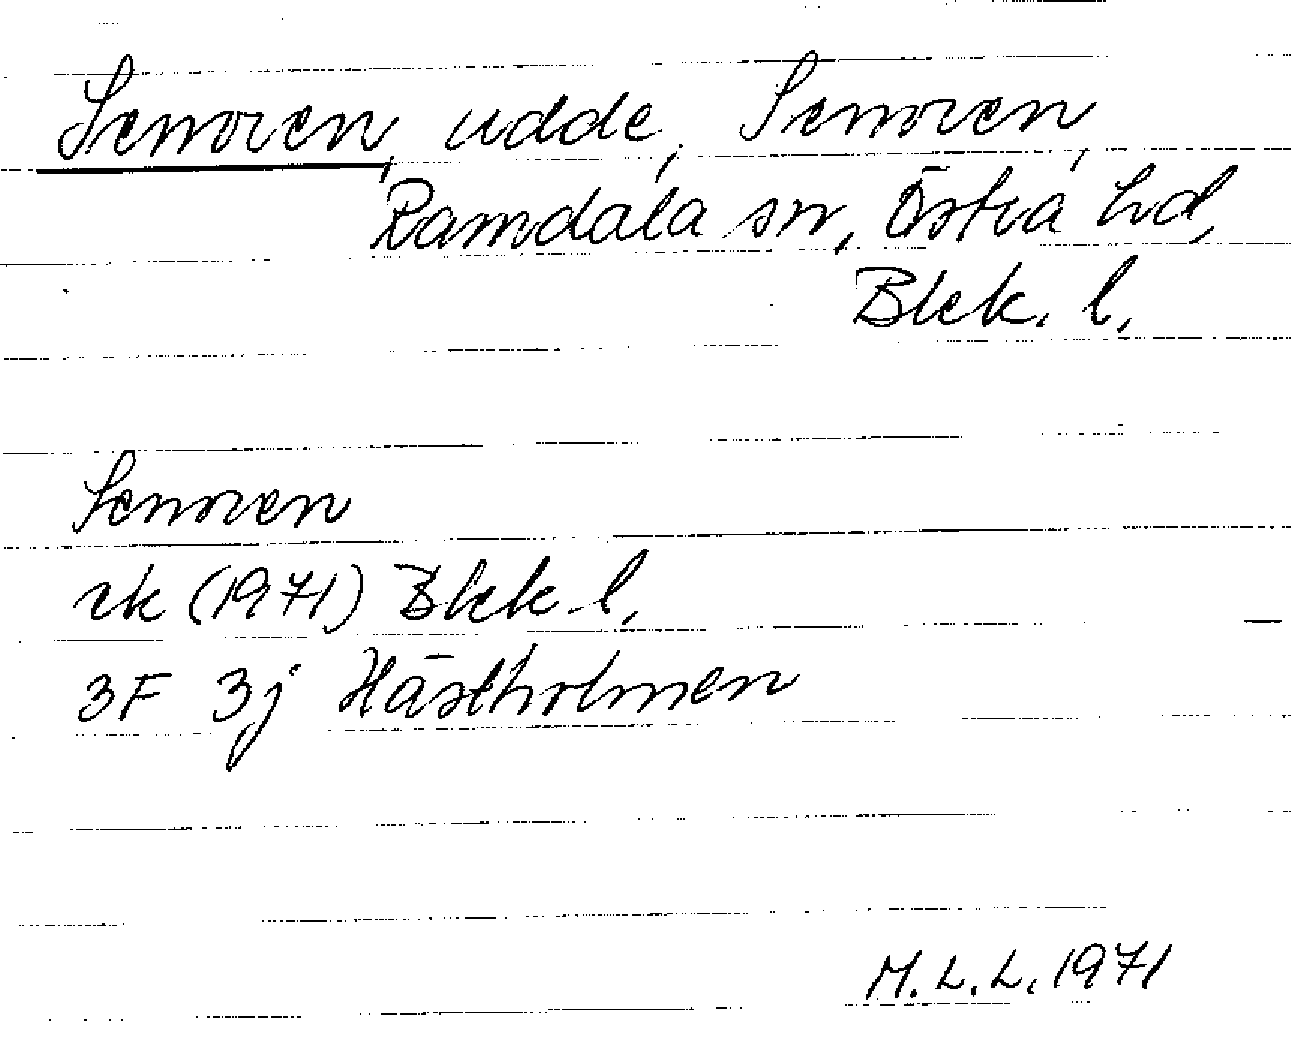 Senoren, udde, Senoren,
Ramdala sn, Östra hd,
Blek. l.
Senoren
rk (1971) Blek l.
3F 3j Hästholmen
M.L.L. 1971